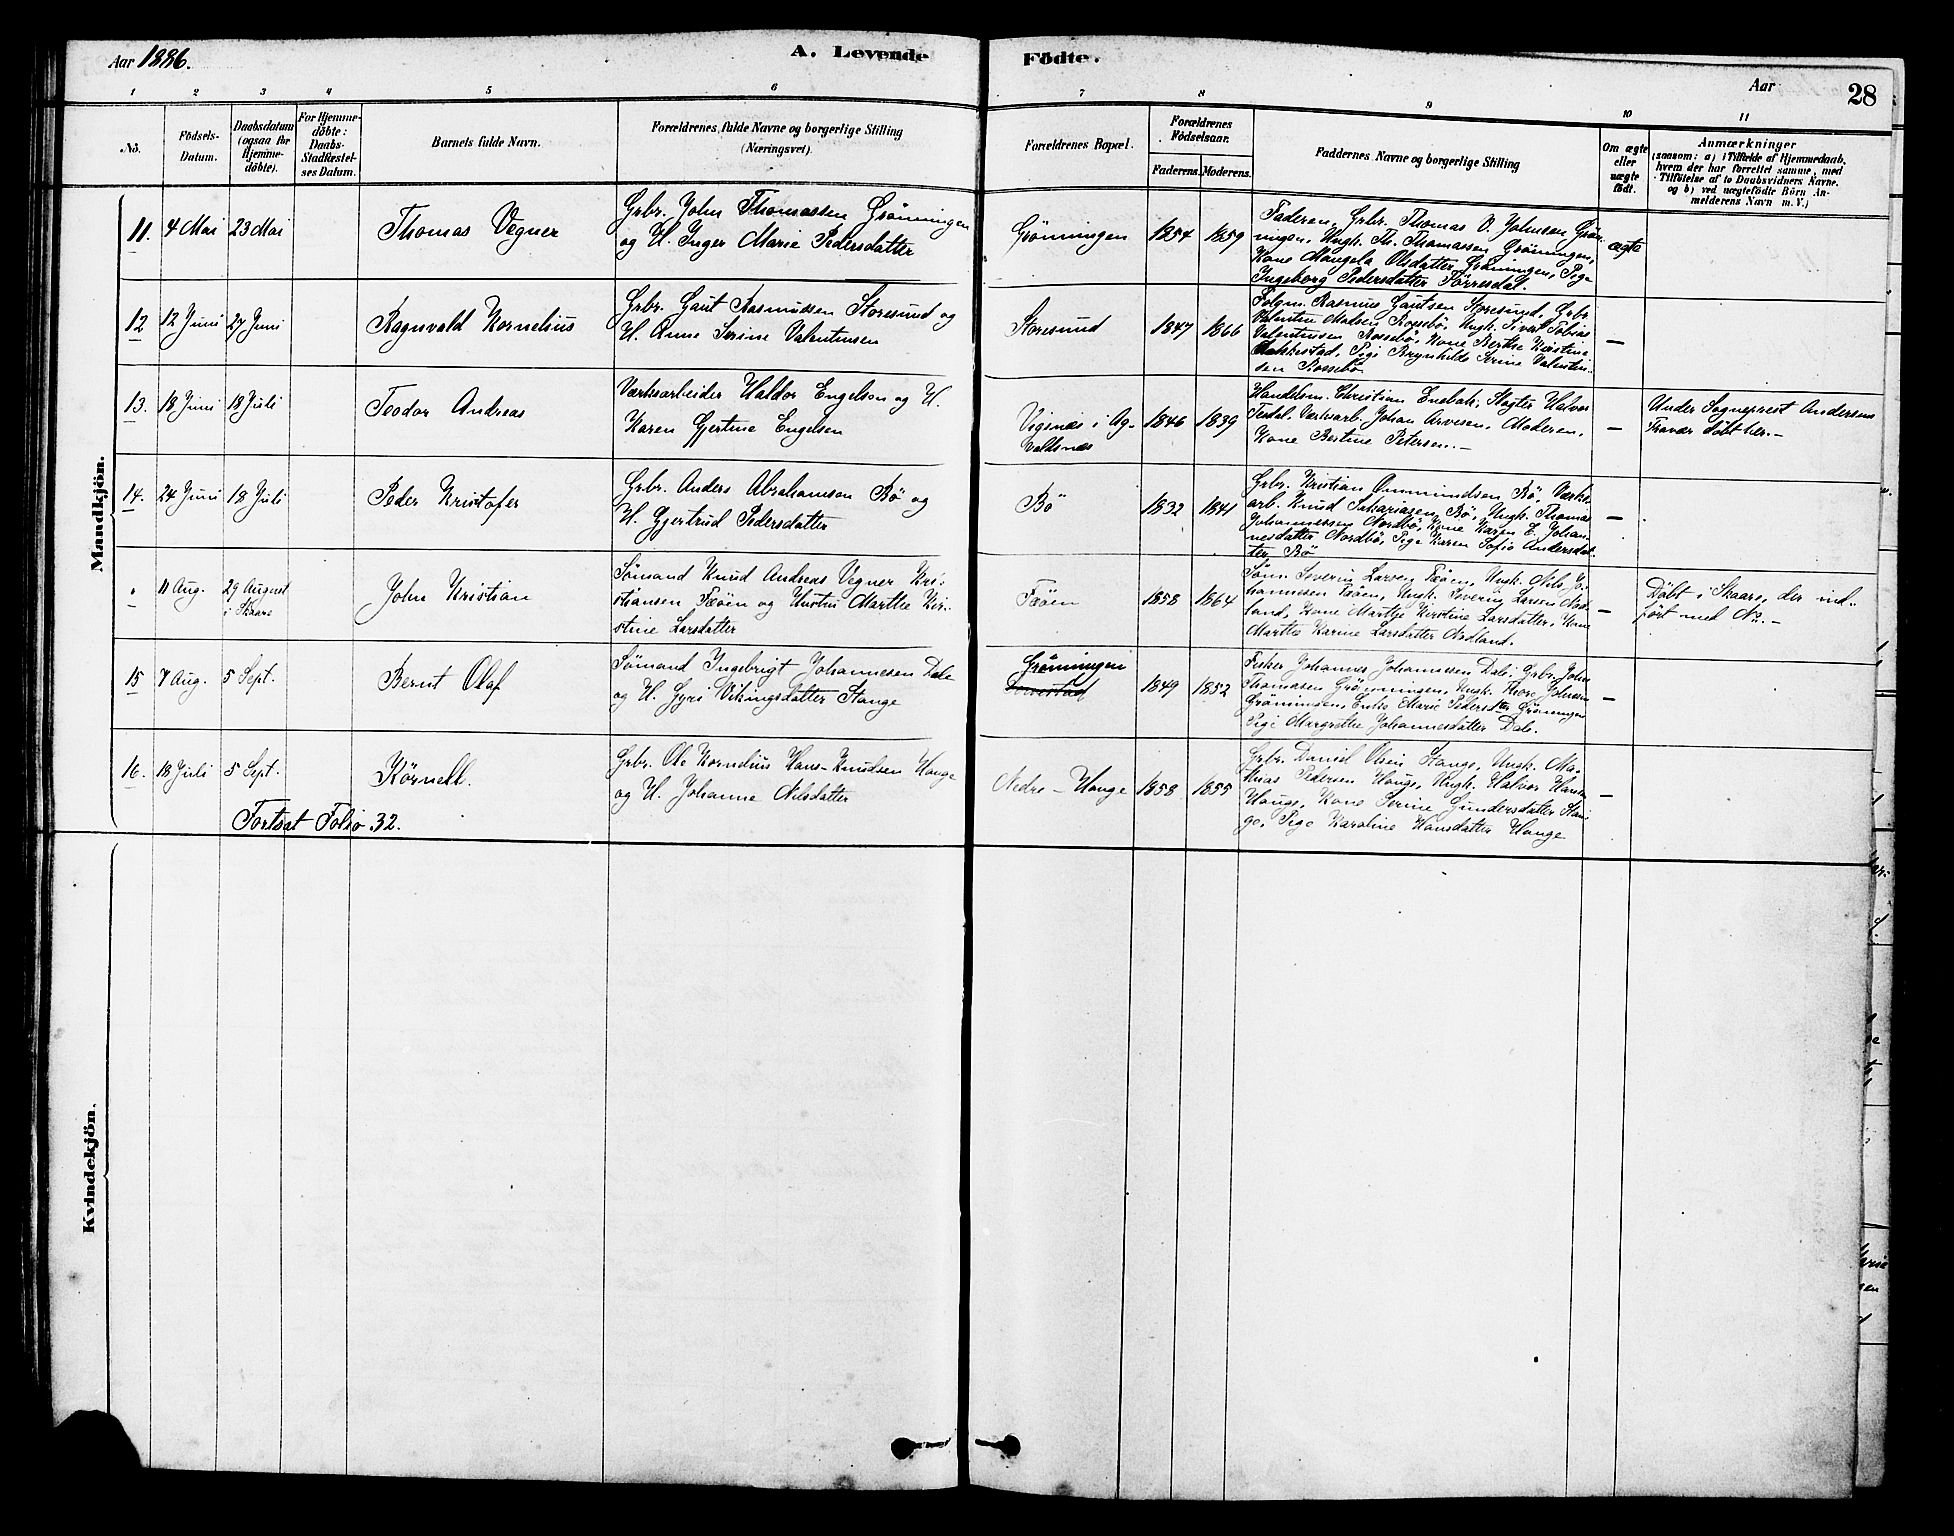 Aar 1886.
A. Levende Födte.
Aar
28
1 2 3 4 5 6 7 8 9 10 11
No.
Födsels-
Datum.
Daabsdatum
(ogsaa for
Hjemme-
döbte).
For Hjemme-
döbte:
Daabs-
Stadfæstel-
ses Datum.
Barnets fulde Navn.
Forældrenes fulde Navne og borgerlige Stilling
(Næringsvei).
Forældrenes Bopæl.
Forældrenes
Födselsaar.
Faderens. Moderens.
Faddernes Navne og borgerlige Stilling
Om ægte
eller
uægte
födt.
Anmærkninger
(saasom: a) i Tilfælde af Hjemmedaab,
hvem der har forrettet samme, med
Tilföielse af to Daabsvidners Navne,
og b) ved uægtefödte Börn An-
melderens Navn m. V.)
Mandkjön.
11. 4 Mai 23 Mai
Thomas Vegner
Grbr. John Thomassen Grönningen
og H. Inger Marie Pedersdatter
Grönningen 1854 1859
Faderen, Grbr. Thomas V. Johnsen Grön-
ningen, Ungk. Th. Thomassen Grönningen,
Kone Mangela Olsdatter Grönningen, Pige
Ingeborg Pedersdatter Förresdal.
ægte
12 12 Juni 27 Juni
Ragnvald Kornelius
Grbr. Gaut Rasmussen Storesund og
H. Anne Serine Valentinsen
Storesund 1847 1866
Folgm. Rasmus Gautsen Storesund, Grbr.
Valentin Madsen Rossebö, Ungk. Sivert Tobias
Valentinsen Rossebö, Kone Berthe Kristine
Pige Brynhilde Serine Valentin-
sen Rossebö
—
13. 18 Juni 18 Juli
Teodor Andreas
Værksarbeider Haldor Engelsen og H.
Karen Gjertine Engelsen
Vigsnæs i Ag-
valdsnæs
1846 1839
Handelsm. Christian Enebak, Slagter Halvor
Værksarb. Johan Arvesen, Moderen,
Kone Bestine Petersen.—
—
Under Sogneprest Andersens
Fravær döbt her.—
14. 24 Juni 18 Juli
Peder Kristofer
Grbr. Anders Abrahamsen Bö og
H. Gjertrud Pedersdatter
Bö 1832 1841
Grbr. Kristian Ommundsen Bö, Værks-
arb. Knud Sakariasen Bö, Ungk. Thomas
Johannessen Nordbö, Kone Karen E. Johan-
nesdatter Nordbö, Pige Karen Sofie Andersdat-
ter Bö
—
11 Aug. 29 August
i Skaare
John Kristian
Sömand Knud Andreas Vegner Kri-
stiansen Fæöen og Hustru Marthe Kir-
stine Larsdatter
Fæöen 1858 1864
Söm. Severin Larsen Fæöen, Ungk. Nils Jo-
hannesen Fæöen, Ungk. Severin Larsen Aad-
land, Kone Marthe Kirstine Larsdatter, Kone
Marthe Karine Larsdatter Aadland.
—
Döbt i Skaare, der ind-
fört med No.—
15 7 Aug. 5 Sept.
Bernt Olaf
Sömand Ingebrigt Johannesen Dale
og H. Gyri Vikingsdatter Stange
Grönningen
1849 1852
Fisker Johannes Johannessen Dale, Grbr. John
Thomasen Grönningen, Ungk. Thore Johnsen
Grönningen, Enke Marie Pedersdtr Grönningen
Pige Margrethe Johannesdatter Dale.
—
16. 18 Juli 5 Sept.
Körnell.
Grbr. Ole Kornelius Hans-Knudsen Hauge
og H. Johanne Nilsdatter
Nedre-Hauge 1858 1855
Grbr. Daniel Olsen Stange, Ungk. Ma-
thias Pedersen Hauge, Ungk. Halvor Hansen
Hauge, Kone Serine Gundersdatter Stan-
ge, Pige Karoline Hansdatter Hauge
—
Fortsat Folio 32.
Kvindekjön.